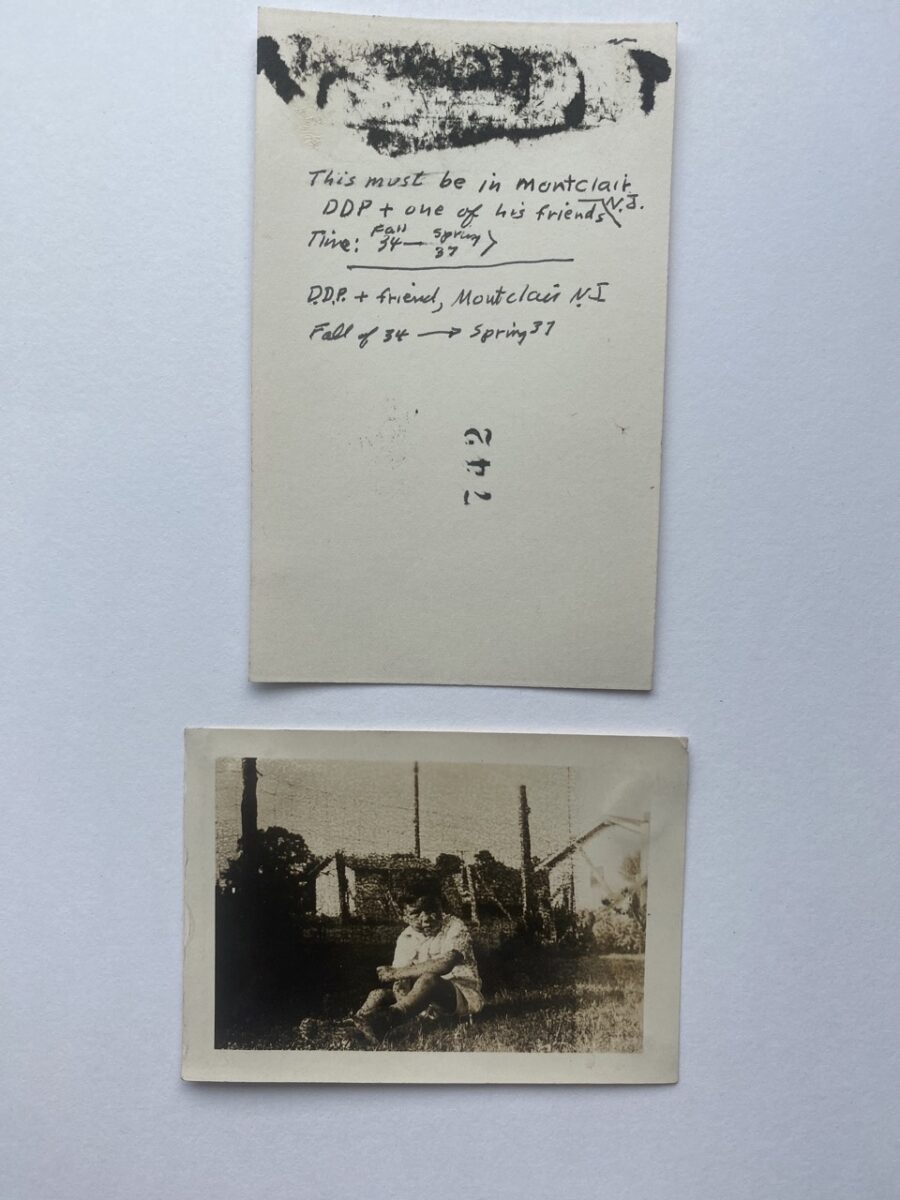 This must be in Montclair
N.J.
DDP + one of his friends
Fall Spring
Time: 34 — 37
D.D.P. + friend, Montclair N.J
Fall of 34 → Spring 37
742